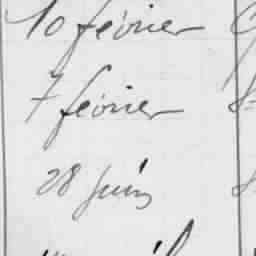 10 février
7 février
28 juin